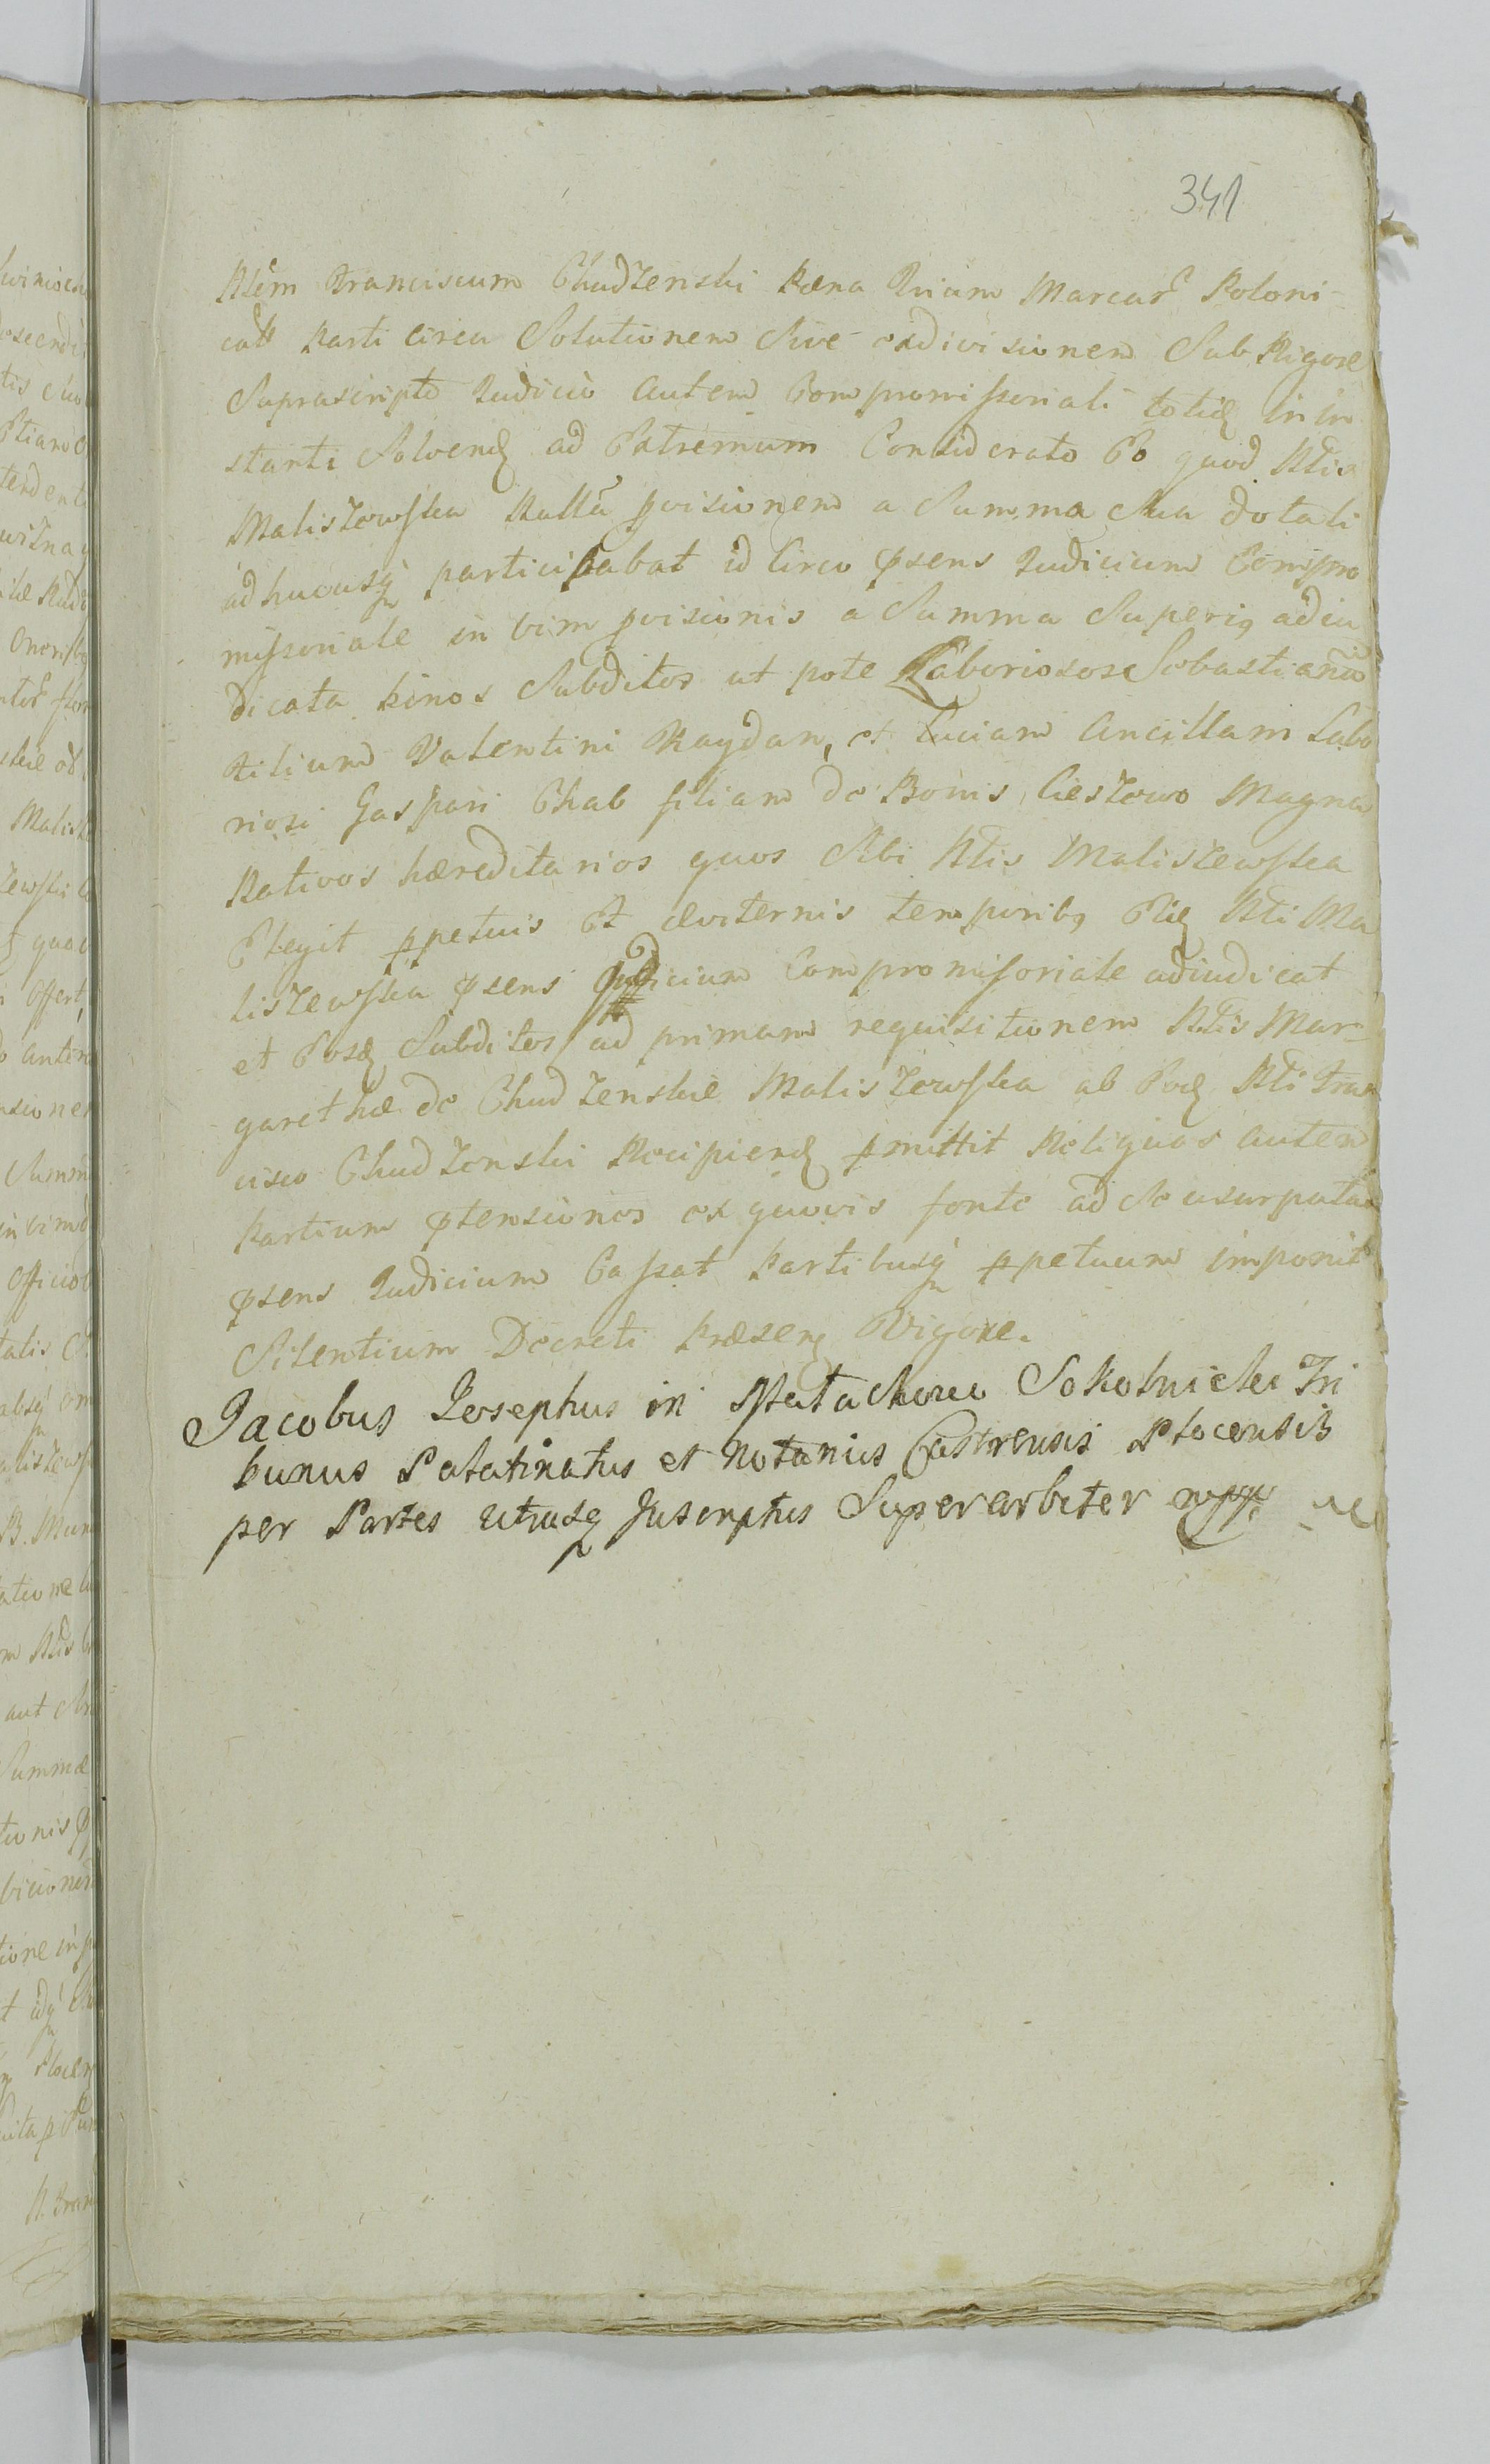 341
Nlem Franciscum Chudzenski Pæna Trium Marcar Poloni-
call Parti circa Solutionem Sive exdivisionem Sub Rigore
Suprascripto Judicio autem Compromissoriali totidę in in
stanti Solvendę ad Extremum Considerato Eo quod Nlis
Maliszewska Nullā pvisionem a Summa Sua dotali
ad hucusq participabat id circo psens Judicium Compro
missoriale in vim pvisionis a Summa Superiq adiu
dicata binos Subditos ut pote Laboriosos Sebastianū
Filium Valentini Raydan, et Luciam Ancillam Labo
riosi Gaspari Chab filiam de Bonis Cieszewo Magna
Nativos hæreditarios quos Sibi Nlis Maliszewska
Elegit ppetuis Et æviternis temporibq Eidę Nli Ma
liszewska psens Judicium Compromissoriale adiudicat
et Eosdę Subditos ad primam requisitionem Nlis Mar-
garethæ de Chudzenskie Maliszewska ab Eodę Nli Fran
cisco Chudzenski Recipiendę pmittit Reliquas autem
Partium ptensiones ex quovis fonte ad Se usurpatas
psens Judicium Cassat Partibusq ppetuum imponit
Silentium Decreti Præsenę Vigore.
Jacobus Josephus in Sokolnicki Tri
bunus Palatinatus et Notarius Castrensis Plocensis
per Partes utrasq Juscriptus Superarbiter mpp